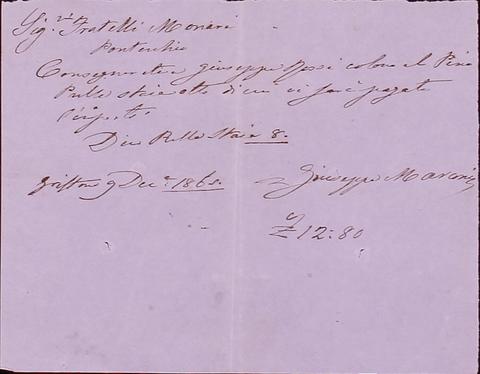 Sig.ri Fratelli Monari
Pontecchio
Consegnerete a Giuseppe Rossi colono al Pino
Pulla staia otto di cui vi sarà pagato
l'importo
Dico Pulla Staia 8.
Griffone 9 Dec.e 1865.
Giuseppe Marconi
£ 12:80